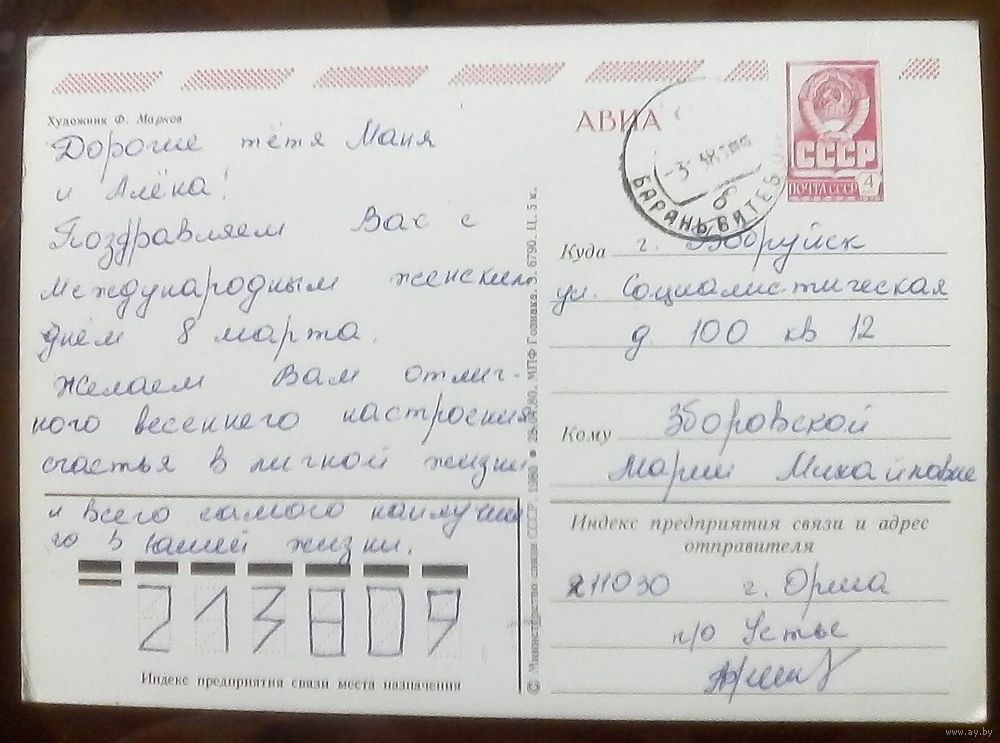 Художник Ф. Марков
Дорогие тётя Маня
и Алёна!
Поздравляем Вас с
международным женским
днём 8 марта.
Желаем Вам отлич-
ного весеннего настроения
счастья в личной жизни
и всего самого наилучше
го в вашей жизни.
213809
Индекс предприятия связи места назначения
© Министерство связи СССР. 1980 • 28.04.80. МПФ Гознака. З. 6790. Ц. 5 к.
АВИА
СССР
ПОЧТА СССР 4
БАРАНЬ ВИТЕБ
Куда г. Бобруйск
ул. Социалистическая
д 100 кв 12
Кому Зборовской
Марии Михайловне
Индекс предприятия связи и адрес
отправителя
211030 г. Орша
п/о Устье
www.ay.by